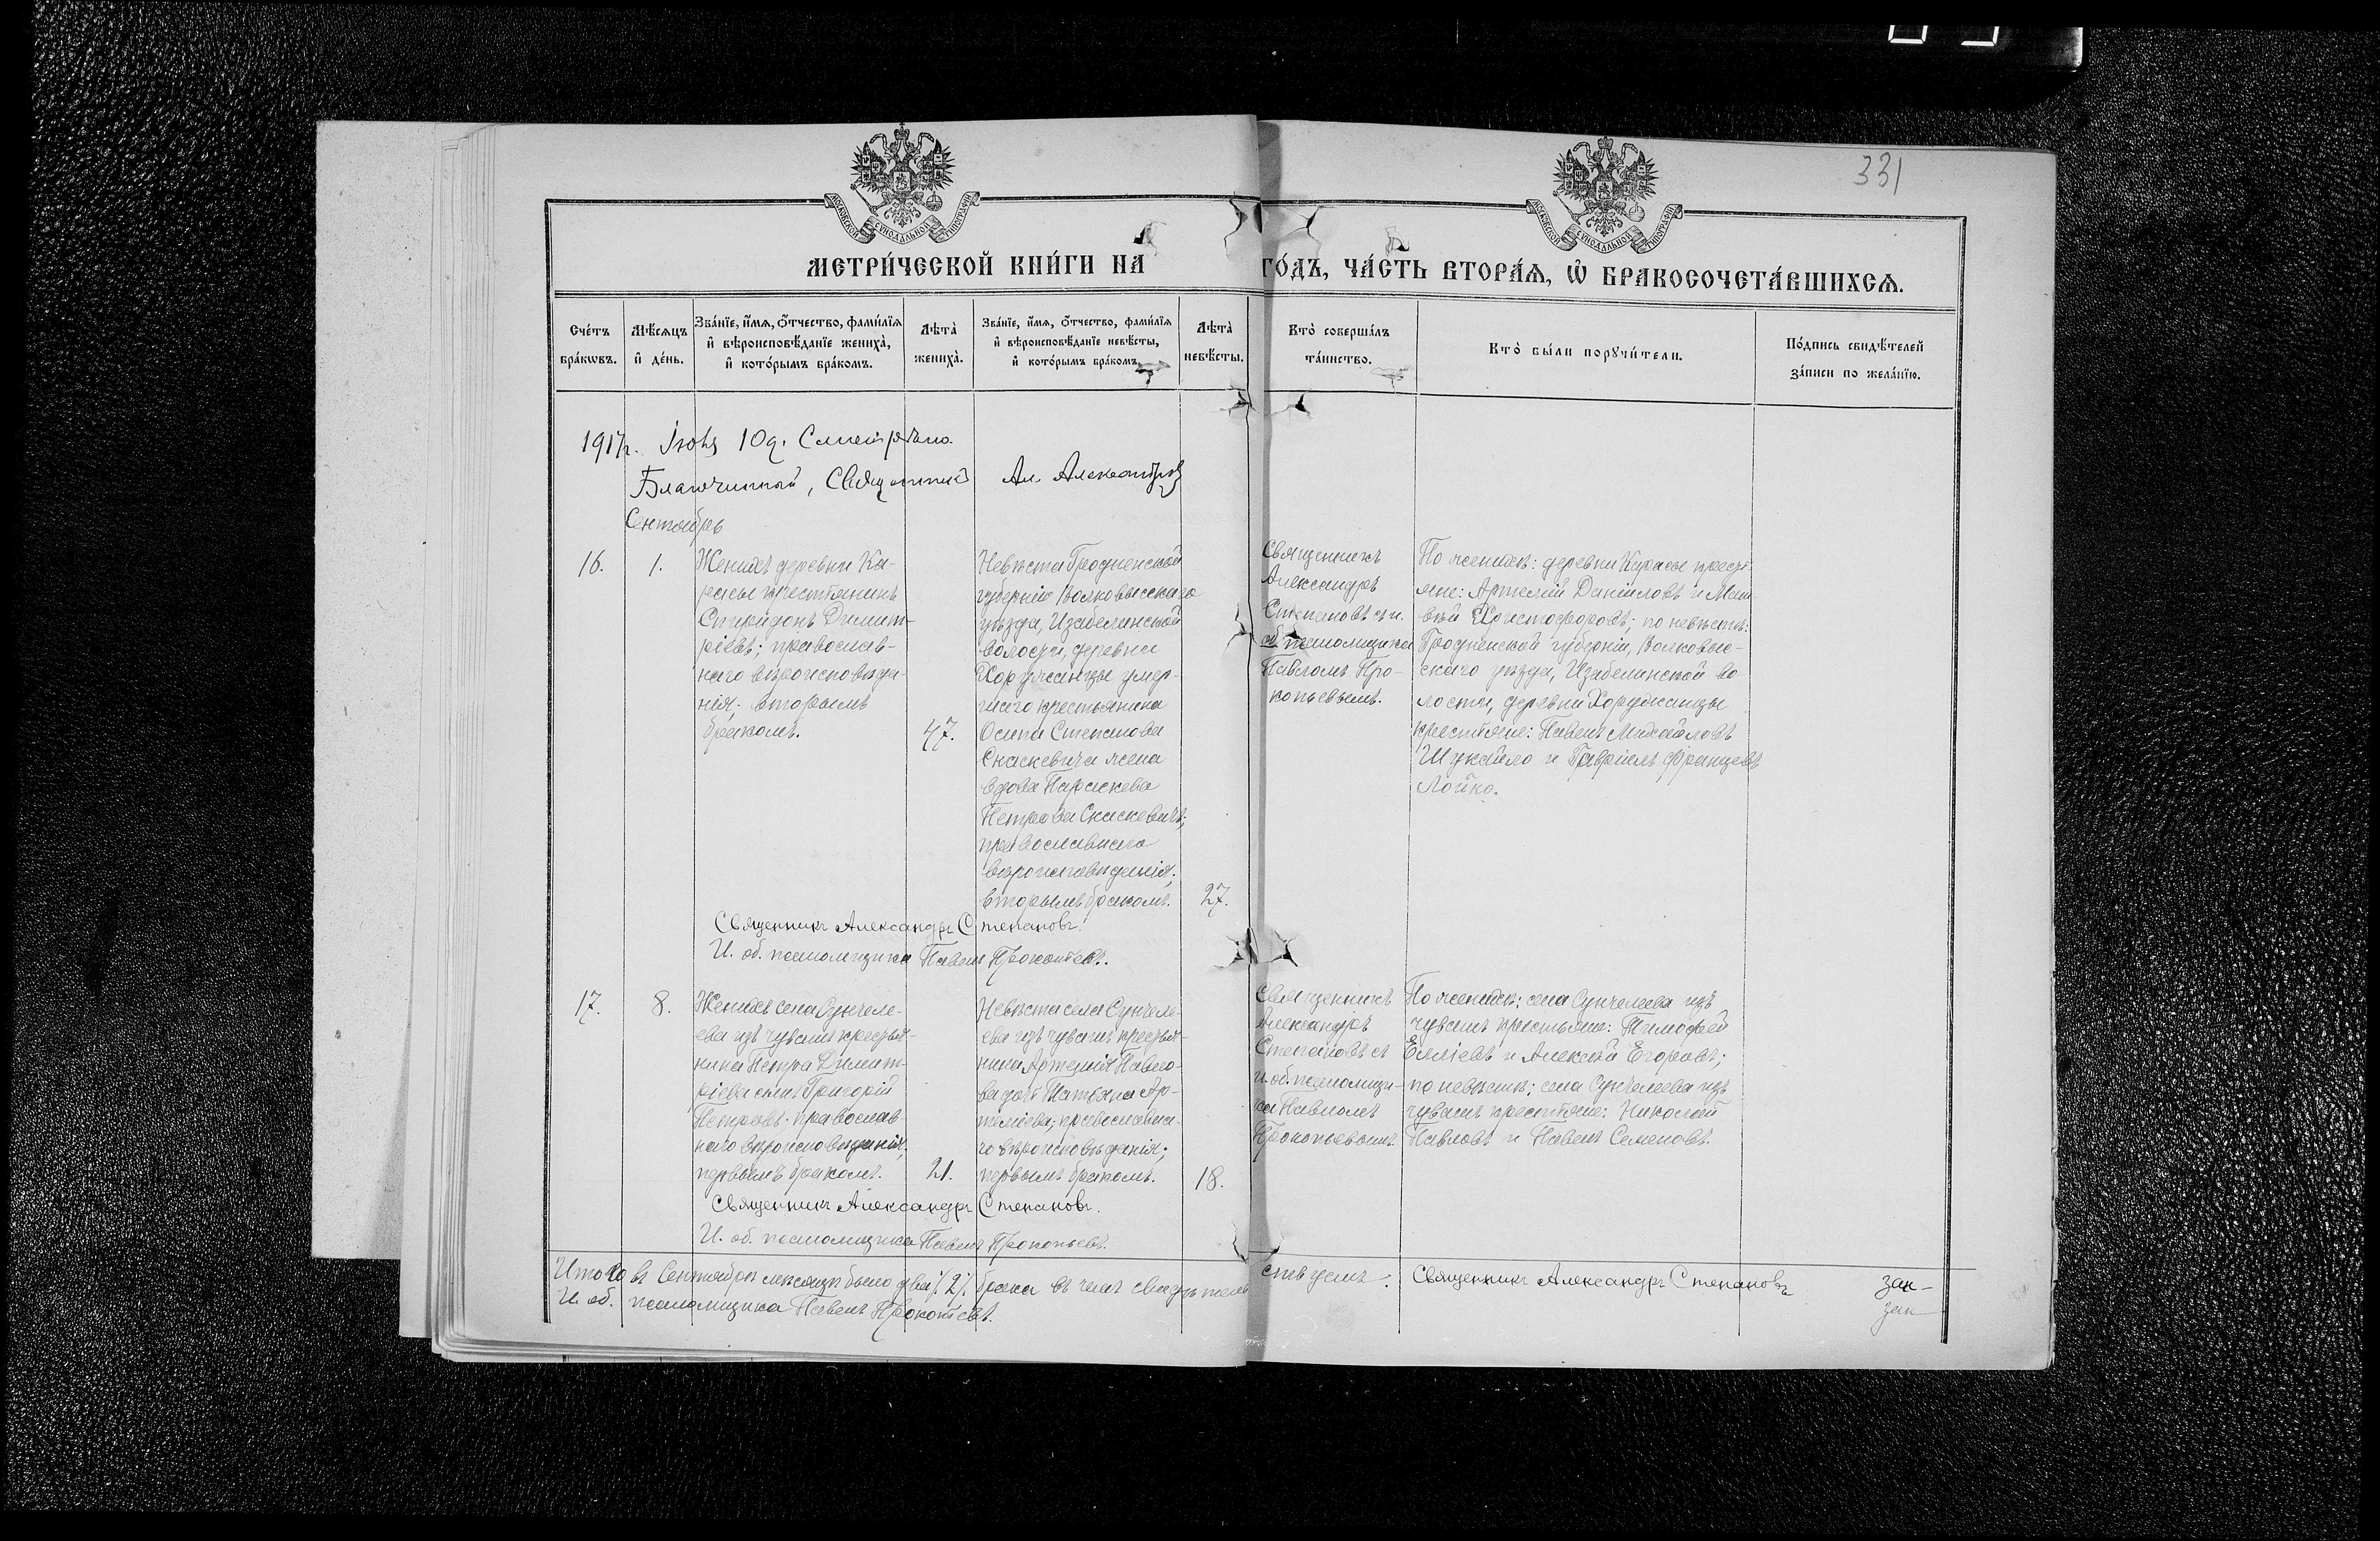 331
МОСКОВСКОЙ СѴНОДАЛЬНОЙ ТИПОГРАФІИ
МОСКОВСКОЙ СѴНОДАЛЬНОЙ ТИПОГРАФІИ
МЕТРИ́ЧЕСКОЙ КНИ́ГИ НА ГО́ДЪ, ЧА́СТЬ ВТОРА́Ѧ, Ѡ БРАКОСОЧЕТА́ВШИХСѦ.
Сче́тъ
бра́кѡвъ.
Мѣ́сѧцъ
и҆ де́нь.
Зва́нїе, и҆́мѧ, ѻ҆́тчество, фами́лїѧ
и҆ вѣроисповѣ́данїе жениха̀,
и҆ кото́рымъ бра́комъ.
Лѣта̀
жениха̀.
Зва́нїе, и҆́мѧ, ѻ҆́тчество, фами́лїѧ
и҆ вѣроисповѣ́данїе невѣ́сты,
и҆ кото́рымъ бра́комъ.
Лѣта̀
невѣ́сты.
Кто̀ соверша́лъ
та́инство.
Кто̀ бы́ли порꙋчи́тели.
По́дпись свидѣ́телей
за́писи по жела́нїю.
1917г. Іюня 10 д. Смотрѣно.
Благочинный, Священникъ Ал. Александровъ
Сентябрь
16.
1.
Женихъ деревни Ка-
расье крестьянинъ
Спиридонъ Димит-
ріевъ; православ-
наго вѣроисповѣда-
нія; вторымъ
бракомъ.
47.
Невѣста Гродненской
губерніи Волковысскаго
уѣзда, Изабелинской
волости, деревни
Хоружанцы умер-
шаго крестьянина
Осипа Степанова
Скаскевича жена
вдова Параскева
Петрова Скаскевичъ;
православнаго
вѣроисповѣданія;
вторымъ бракомъ.
27.
Священникъ
Александръ
Степановъ съ и.
об. псаломщика
Павломъ Про-
копьевымъ.
По женихѣ: деревни Карасье кресть-
яне: Артемій Даниловъ и Мат-
вѣй Христофоровъ; по невѣстѣ:
Гродненской губерніи, Волковыс-
скаго уѣзда, Изабелинской во-
лости, деревни Хоружанцы
крестьяне: Павелъ Михайловъ
Шукайло и Гавріилъ Францевъ
Лойко.
Священникъ Александръ Степановъ.
И. об. псаломщика Павелъ Прокопьевъ.
17.
8.
Женихъ села Сунчеле-
ева изъ чувашъ крестья-
нина Петра Димит-
ріева сынъ Григорій
Петровъ; православ-
наго вѣроисповѣданія;
первымъ бракомъ.
21.
Невѣста села Сунчеле-
ева изъ чувашъ крестья-
нина Артемія Павло-
ва дочь Татьяна Ар-
теміева; православна-
го вѣроисповѣданія;
первымъ бракомъ.
18.
Священникъ
Александръ
Степановъ съ
и. об. псаломщи-
ка Павломъ
Прокопьевымъ.
По женихѣ: села Сунчелеева изъ
чувашъ крестьяне: Тимофей
и Алексѣй Егоровъ;
по невѣстѣ: села Сунчелеева изъ
чувашъ крестьяне: Николай
Павловъ и Павелъ Семеновъ.
Священникъ Александръ Степановъ.
И. об. псаломщика Павелъ Прокопьевъ.
Итого въ Сентябрѣ мѣсяцѣ было два /2/ брака въ чемъ свидѣтель-
ствуемъ: Священникъ Александръ Степановъ
И. об. псаломщика Павелъ Прокопьевъ.